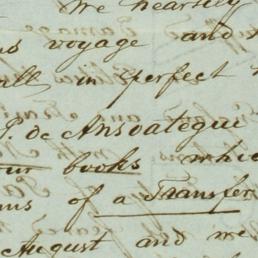 We heartily
voyage and
all in perfect
J. de Ansoategui
our books which
of a Transfer
August and we